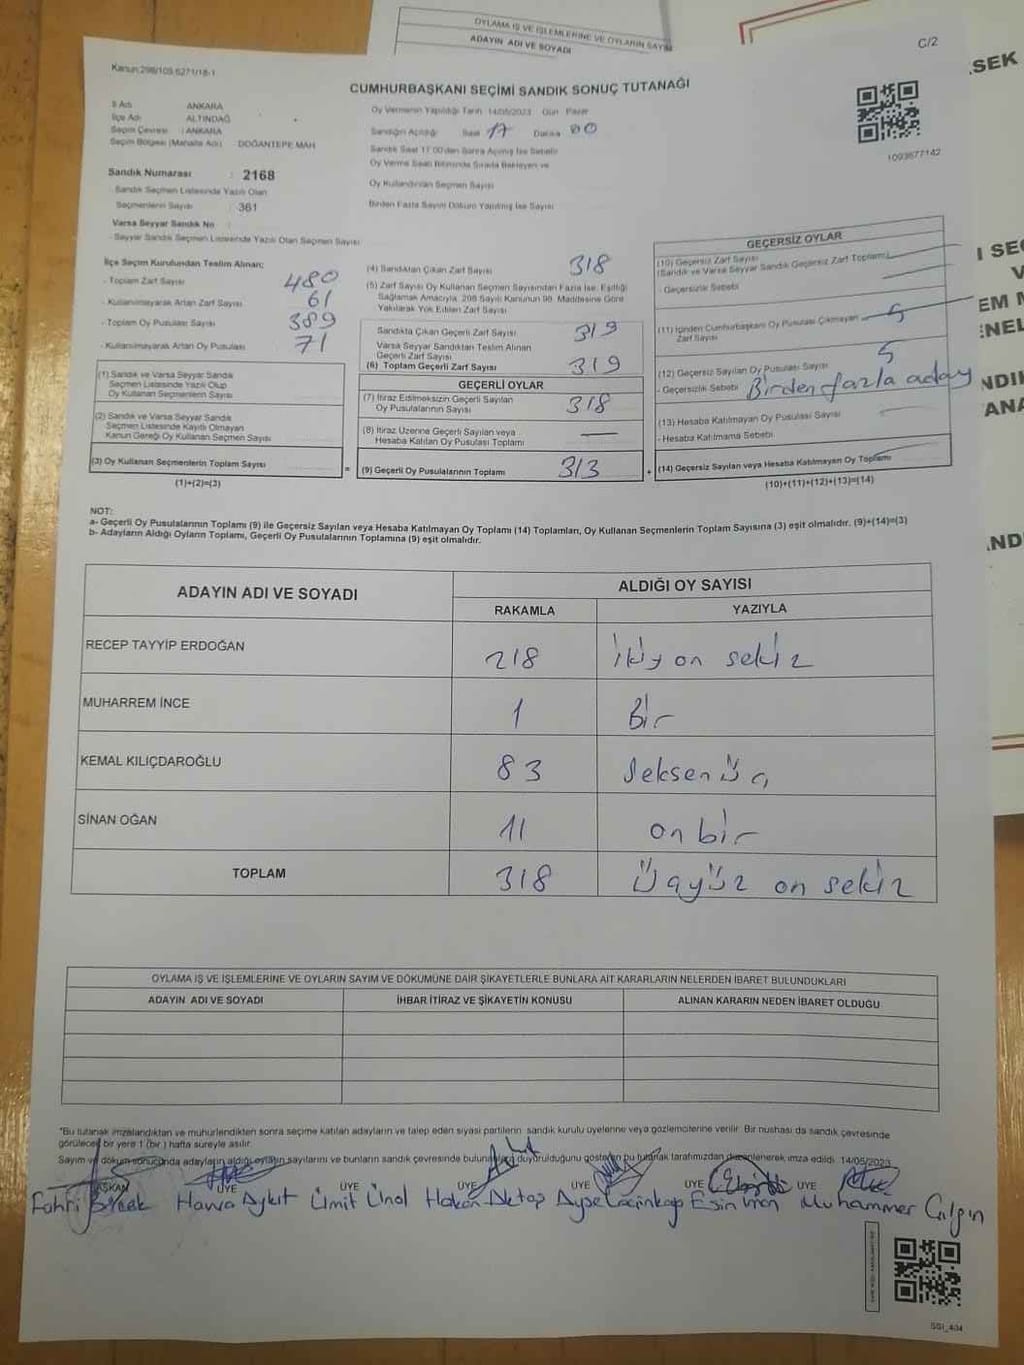 OYLAMA İŞ VE İŞLEMLERİNE VE OYLARIN SAYIM
ADAYIN ADI VE SOYADI
C/2
SEK
Kanun:298/109,6271/18-1
CUMHURBAŞKANI SEÇİMİ SANDIK SONUÇ TUTANAĞI
İl Adı ANKARA
İlçe Adı ALTINDAĞ
Seçim Çevresi : ANKARA
Seçim Bölgesi (Mahalle Adı) DOĞANTEPE MAH
Sandık Numarası : 2168
- Sandık Seçmen Listesinde Yazılı Olan
Seçmenlerin Sayısı : 361
Varsa Seyyar Sandık No
- Seyyar Sandık Seçmen Listesinde Yazılı Olan Seçmen Sayısı
Oy Vermenin Yapıldığı Tarih 14/05/2023 Gün Pazar
Sandığın Açıldığı Saat 17 Dakika 00
Sandık Saat 17:00'den Sonra Açılmış İse Sebebi
Oy Verme Saati Bitiminde Sırada Bekleyen ve
Oy Kullandırılan Seçmen Sayısı
Birden Fazla Sayım Döküm Yapılmış İse Sayısı
1093677142
İlçe Seçim Kurulundan Teslim Alınan;
- Toplam Zarf Sayısı 480
- Kullanılmayarak Artan Zarf Sayısı 61
- Toplam Oy Pusulası Sayısı 389
- Kullanılmayarak Artan Oy Pusulası 71
(1) Sandık ve Varsa Seyyar Sandık
Seçmen Listesinde Yazılı Olup
Oy Kullanan Seçmenlerin Sayısı
(2) Sandık ve Varsa Seyyar Sandık
Seçmen Listesinde Kayıtlı Olmayan
Kanun Gereği Oy Kullanan Seçmen Sayısı
(3) Oy Kullanan Seçmenlerin Toplam Sayısı
(1)+(2)=(3)
=
(4) Sandıktan Çıkan Zarf Sayısı 318
(5) Zarf Sayısı Oy Kullanan Seçmen Sayısından Fazla İse, Eşitliği
Sağlamak Amacıyla, 298 Sayılı Kanunun 98. Maddesine Göre
Yakılarak Yok Edilen Zarf Sayısı
Sandıkta Çıkan Geçerli Zarf Sayısı 319
Varsa Seyyar Sandıktan Teslim Alınan
Geçerli Zarf Sayısı
(6) Toplam Geçerli Zarf Sayısı 319
GEÇERLİ OYLAR
(7) İtiraz Edilmeksizin Geçerli Sayılan
Oy Pusulalarının Sayısı 318
(8) İtiraz Üzerine Geçerli Sayılan veya
Hesaba Katılan Oy Pusulası Toplamı —
(9) Geçerli Oy Pusulalarının Toplamı 313
+
GEÇERSİZ OYLAR
(10) Geçersiz Zarf Sayısı
(Sandık ve Varsa Seyyar Sandık Geçersiz Zarf Toplamı)
- Geçersizlik Sebebi
(11) İçinden Cumhurbaşkanı Oy Pusulası Çıkmayan
Zarf Sayısı 5
(12) Geçersiz Sayılan Oy Pusulası Sayısı 5
- Geçersizlik Sebebi Birden fazla aday
(13) Hesaba Katılmayan Oy Pusulası Sayısı
- Hesaba Katılmama Sebebi
(14) Geçersiz Sayılan veya Hesaba Katılmayan Oy Toplamı
(10)+(11)+(12)+(13)=(14)
NOT:
a- Geçerli Oy Pusulalarının Toplamı (9) ile Geçersiz Sayılan veya Hesaba Katılmayan Oy Toplamı (14) Toplamları, Oy Kullanan Seçmenlerin Toplam Sayısına (3) eşit olmalıdır. (9)+(14)=(3)
b- Adayların Aldığı Oyların Toplamı, Geçerli Oy Pusulalarının Toplamına (9) eşit olmalıdır.
ADAYIN ADI VE SOYADI
ALDIĞI OY SAYISI
RAKAMLA YAZIYLA
RECEP TAYYİP ERDOĞAN 218 ikiy on sekiz
MUHARREM İNCE 1 Bir
KEMAL KILIÇDAROĞLU 83 Seksen üç
SİNAN OĞAN 11 on bir
TOPLAM 318 üçyüz on sekiz
OYLAMA İŞ VE İŞLEMLERİNE VE OYLARIN SAYIM VE DÖKÜMÜNE DAİR ŞİKAYETLERLE BUNLARA AİT KARARLARIN NELERDEN İBARET BULUNDUKLARI
ADAYIN ADI VE SOYADI İHBAR İTİRAZ VE ŞİKAYETİN KONUSU ALINAN KARARIN NEDEN İBARET OLDUĞU
"Bu tutanak imzalandıktan ve mühürlendikten sonra seçime katılan adayların ve talep eden siyasi partilerin sandık kurulu üyelerine veya gözlemcilerine verilir. Bir nüshası da sandık çevresinde
görülecek bir yere 1 (bir ) hafta süreyle asılır.
Sayım ve döküm sonucunda adayların aldığı oyların sayılarını ve bunların sandık çevresinde duyurulduğunu gösteren bu tutanak tarafımızdan düzenlenerek imza edildi. 14/05/2023
BAŞKAN ÜYE ÜYE ÜYE ÜYE ÜYE
Fahri Havva Aykıt Ümit Ünal Hakan Aktaş Ayşe Esin Muhammer Çılgın
SSI_404